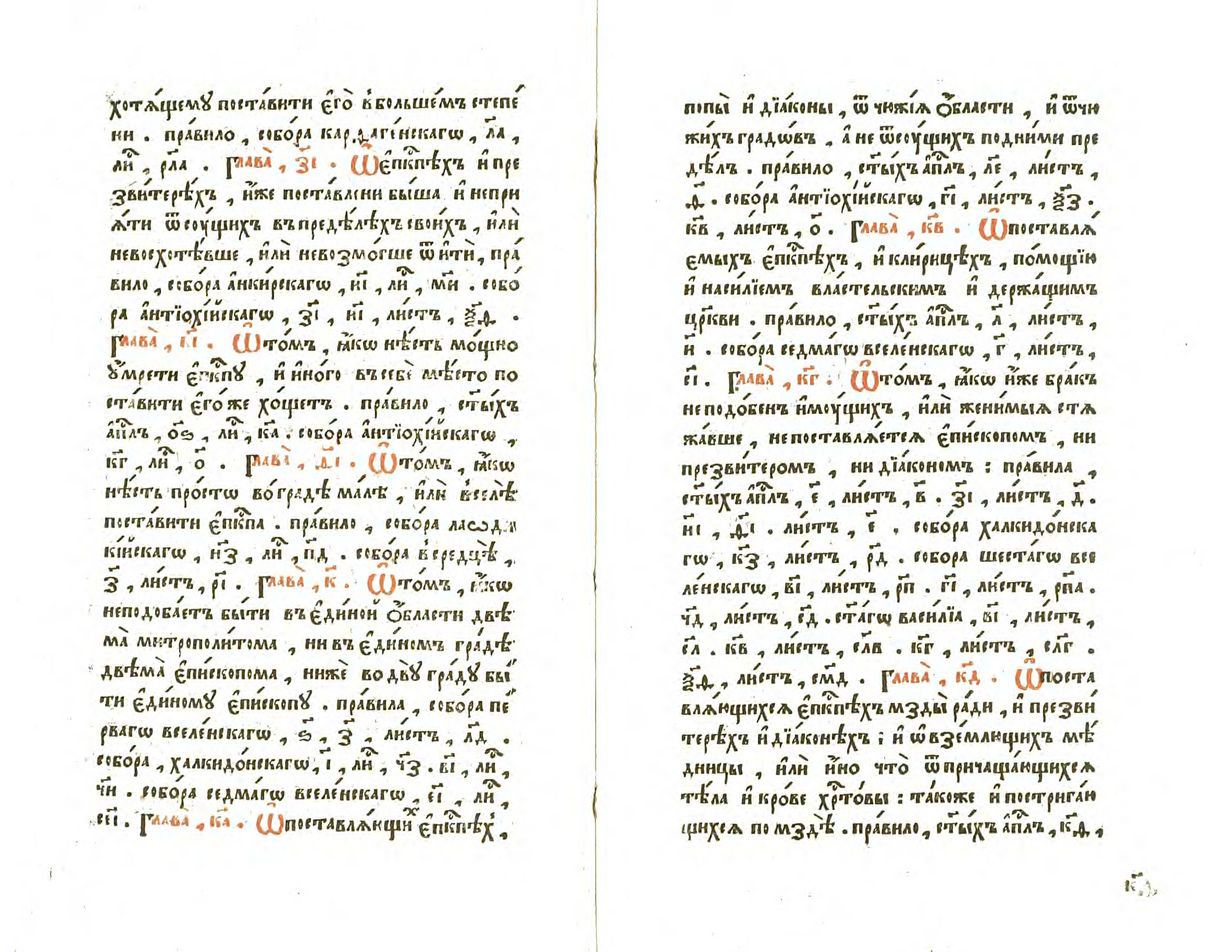 хотѧ́щемꙋ поста́вити є҆го̀ в҆больше́мъ степе́
ни . пра́вило , собо́ра карѳаге́нскагѡ , л҃а ,
ли́ , рл҃а . Глава̀ , з҃і . Ѡ҆єп҆кпѣхъ и҆пре
зви́терѣхъ , и҆́же поста́влени бы́ша и҆непри
ѧ́ти ѿсꙋ́щихъ въпредѣ́лѣхъ свои́хъ , и҆лѝ
невосхотѣ́вше , и҆лѝ невозмо́гше ѿитѝ , пра́
вило , собо́ра а҆нки́рскагѡ , и҃і , ли́ , м҃и . собо́
ра а҆нтїохі́йскагѡ , з҃і , и҃і , ли́стъ , ѯ҃ѳ .
Глава̀ , и҃і . Ѡ҆то́мъ , ꙗ҆́кѡ нѣ́сть мо́щно
ᲂу҆мре́ти є҆п҃кпꙋ , и҆ и҆но́го въсебѐ мѣ́сто по
ста́вити є҆го́же хо́щетъ . пра́вило , ст҃ы́хъ
а҆п҃лъ , о҃ѕ , ли́ , к҃а . собо́ра а҆нтїохі́йскагѡ ,
к҃г , ли́ , о҃ . Глава̀ , ѳ҃і . Ѡ҆то́мъ , ꙗ҆́кѡ
нѣ́сть про́стѡ во́градѣ ма́лѣ , и҆лѝ в҆селѣ̀
поста́вити є҆п҃кпа . пра́вило , собо́ра лаѡдı
кі́йскагѡ , н҃з , ли́ , п҃д . собо́ра в҆середцѣ̀ ,
з҃ , ли́стъ , р҃і . Глава̀ , к҃ . Ѡ҆то́мъ , ꙗ҆́кѡ
неподоба́етъ бы́ти въє҆ди́ной ѻ҆́бласти двѣ
ма̀ митрополи́тома , ни въ є҆ди́номъ гра́дѣ
двѣма̀ є҆пи́скопома , нижѐ во двꙋ̀ гра́дꙋ бы́
ти є҆ди́номꙋ є҆пи́скопꙋ . пра́вила , собо́ра пе́
рвагѡ вселе́нскагѡ , ѕ҃ , з҃ , ли́стъ , л҃д .
собо́ра , халкидо́нскагѡ , і҃ , ли́ , ч҃з . в҃і , ли́ ,
ч҃и . собо́ра седма́гѡ вселе́нскагѡ , є҃і , ли́ ,
се҃і . Глава̀ , к҃а . Ѡ҆поставлѧ́ющи є҆п҃кпѣхъ ,
попы̀ и҆ дїа́коны , ѿ чюжі́ѧ ѻ҆́бласти , и҆ ѿчю
жи́хъ градѡ́въ , а҆ не ѿсꙋ́щихъ подни́ми пре
дѣ́лъ . пра́вило , ст҃ы́хъ а҆п҃лъ , л҃е , ли́стъ ,
ѳ҃ . собо́ра а҆нтїохі́йскагѡ , г҃і , ли́стъ , ѯ҃з .
к҃в , ли́стъ , о҃ . Глава̀ , к҃в . Ѡ҆поставлѧ
емыхъ є҆п҃кпѣхъ , и҆ кли́рицѣхъ , по́мощїю
и҆ наси́лїемъ властельскимъ и҆ держа́щимъ
цр҃кви . пра́вило , ст҃ы́хъ а҆п҃лъ , л҃ , ли́стъ ,
и҃ . собо́ра седма́гѡ вселе́нскагѡ , г҃ , ли́стъ ,
с҃і . Глава̀ , к҃г . Ѡ҆то́мъ , ꙗ҆́кѡ и҆́же бра́къ
не подо́бенъ и҆мꙋ́щихъ , и҆лѝ жени́мыѧ стѧ
жа́вше , не поставлѧ́етсѧ є҆пи́скопомъ , ни
презви́теромъ , ни дїа́кономъ : пра́вила ,
ст҃ы́хъ а҆п҃лъ , е҃ , ли́стъ , в҃ . з҃і , ли́стъ , д҃ .
и҃і , ѳ҃і . ли́стъ , е҃ . собо́ра халкидо́нска
гѡ , к҃з , ли́стъ , р҃д . собо́ра шеста́гѡ все
ле́нскагѡ , в҃і , ли́стъ , р҃п . г҃і , ли́стъ , рп҃а .
ч҃д , ли́стъ , с҃д . ст҃а́гѡ васи́лїа , в҃і , ли́стъ ,
с҃л . к҃в , ли́стъ , сл҃в . к҃г , ли́стъ , сл҃г .
ѯ҃ѳ , ли́стъ , см҃д . Глава̀ , к҃д . Ѡ҆поста
влѧ́ющихсѧ є҆п҃кпѣхъ мзды̀ ра́ди , и҆ презви́
терѣхъ и҆ дїа́конѣхъ ; и҆ ѡ҆вземлющихъ мѣ́
дницы , и҆лѝ и҆́но что̀ ѿ причаща́ющихсѧ
тѣ́ла и҆ кро́ве хр҃то́вы : та́коже и҆ пострига́ю
щихсѧ по мздѣ̀ . пра́вило , ст҃ы́хъ а҆п҃лъ , к҃ѳ ,